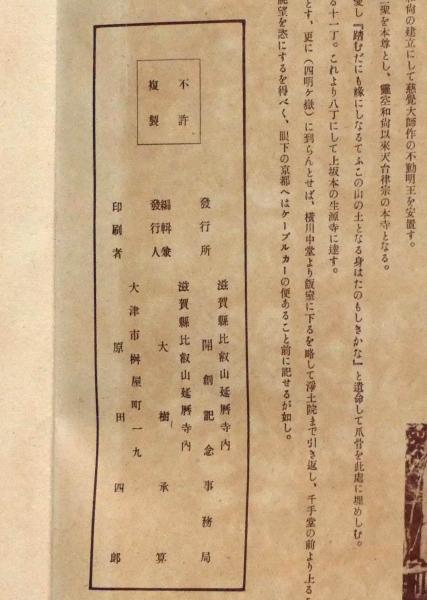 和尙の建立にして慈覺大師作の不動明王を安置す。
聖を本尊とし、靈空和尙以來天台律宗の本寺となる。
愛し『踏むだにも緣にしなるてふこの山の土となる身はたのもしきかな』と遺命して爪骨を此處に埋めしむ。
る十一丁。これより八丁にして上坂本の生源寺に達す。
とす、更に（四明ケ嶽）に到らんとせば、橫川中堂より飯室に下るを略して淨土院まで引き返し、千手堂の前より上る
眺望を恣にするを得べく、眼下の京都へはケーブルカーの便あること前に記せるが如し。
不許
複製
發行所
滋賀縣比叡山延曆寺內
開創記念事務局
編輯兼
發行人
滋賀縣比叡山延曆寺內
大樹承算
印刷者
大津市桝屋町一九
原田四郞